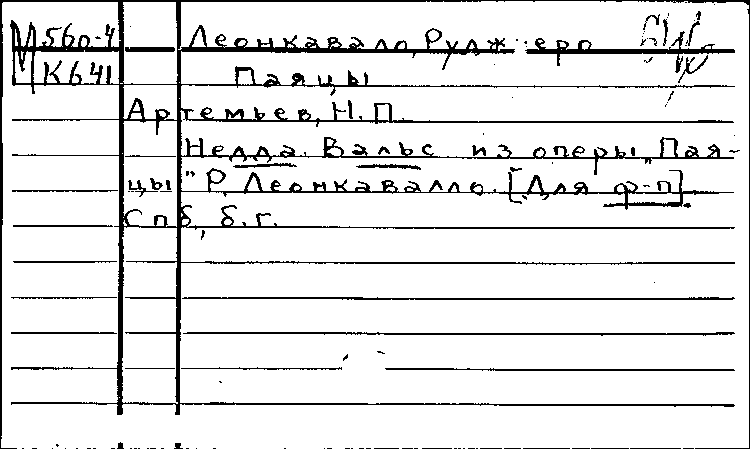 М 56п-4 Леонкавало, Руджеро
К641 Паяцы
Артемьев, Н.П.
Недда. Вальс из оперы „Пая-
цы" Р. Леонкавалло. [Для ф-п].
Спб, б.г.